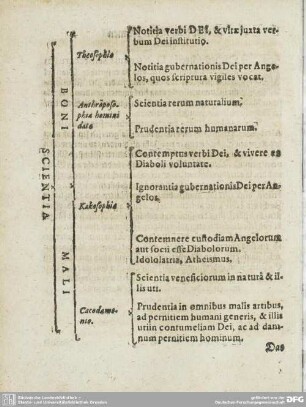 Notitia verbi DEI, & vitæ juxta ver-
bum Dei institutio.
Theosophia
Notitia gubernationis Dei per Ange-
los, quos scriptura vigiles vocat.
BONI
Anthroposo-
phia homini
data
Scientia rerum naturalium.
Prudentia rerum humanarum.
SCIENTIA
Contemptus verbi Dei, & vivere ex
Diaboli voluntate.
Ignorantia gubernationis Dei per An-
gelos.
Kakosophia
Contemnere custodiam Angelorum
aut socii esse Diabolorum.
Idololatria, Atheismus.
MALI
Scientia veneficiorum in natura & il-
lis uti.
Cacodæmo-
nia.
Prudentia in omnibus malis artibus,
ad pernitiem humani generis, & illis
uti in contumeliam Dei, ac ad dam-
num pernitiem hominum.
Das